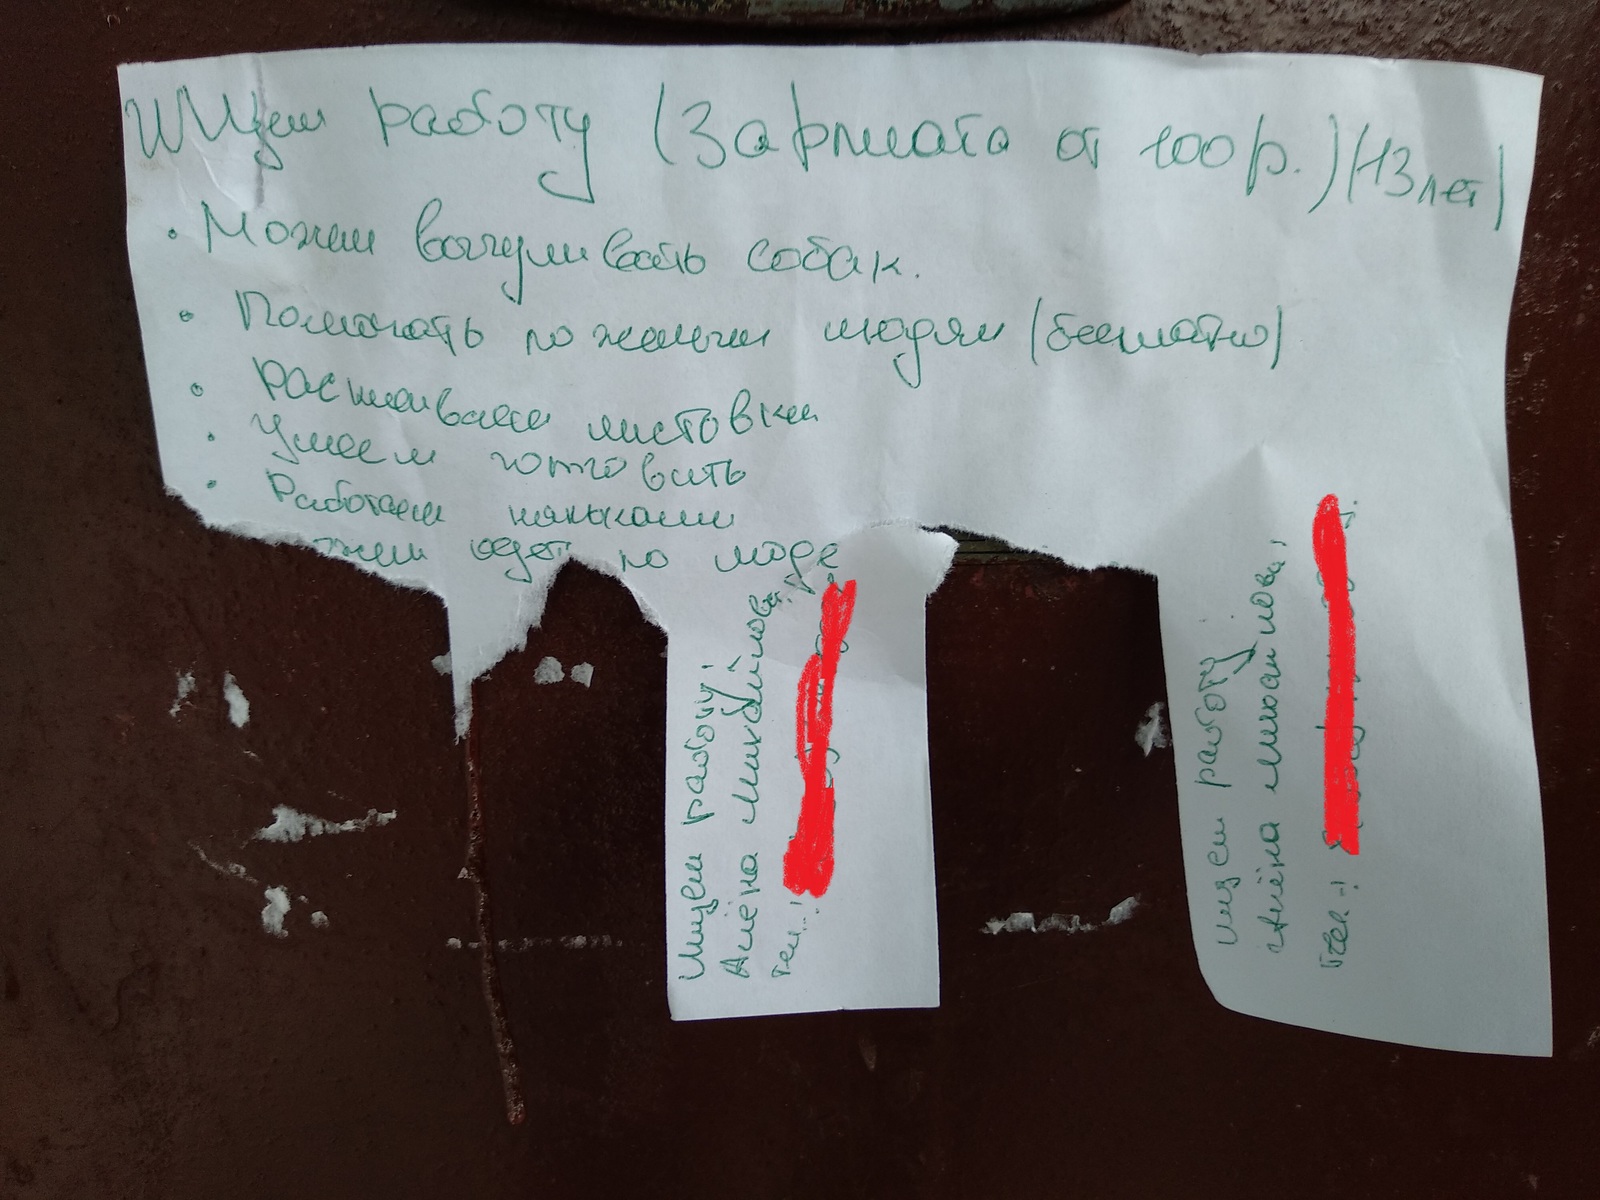 Ищем работу (Зарплата от 100р.) (13 лет)
• Можем выгуливать собак.
• Помогать пожилым людям (бесплатно)
• Расклеиваем листовки
• Умеем готовить
• Работаем няньками
жем одет по моде
Ищем работу!
Алёна Михайлова
тел.:
Ищем работу
Алёна Михайлова
тел.: